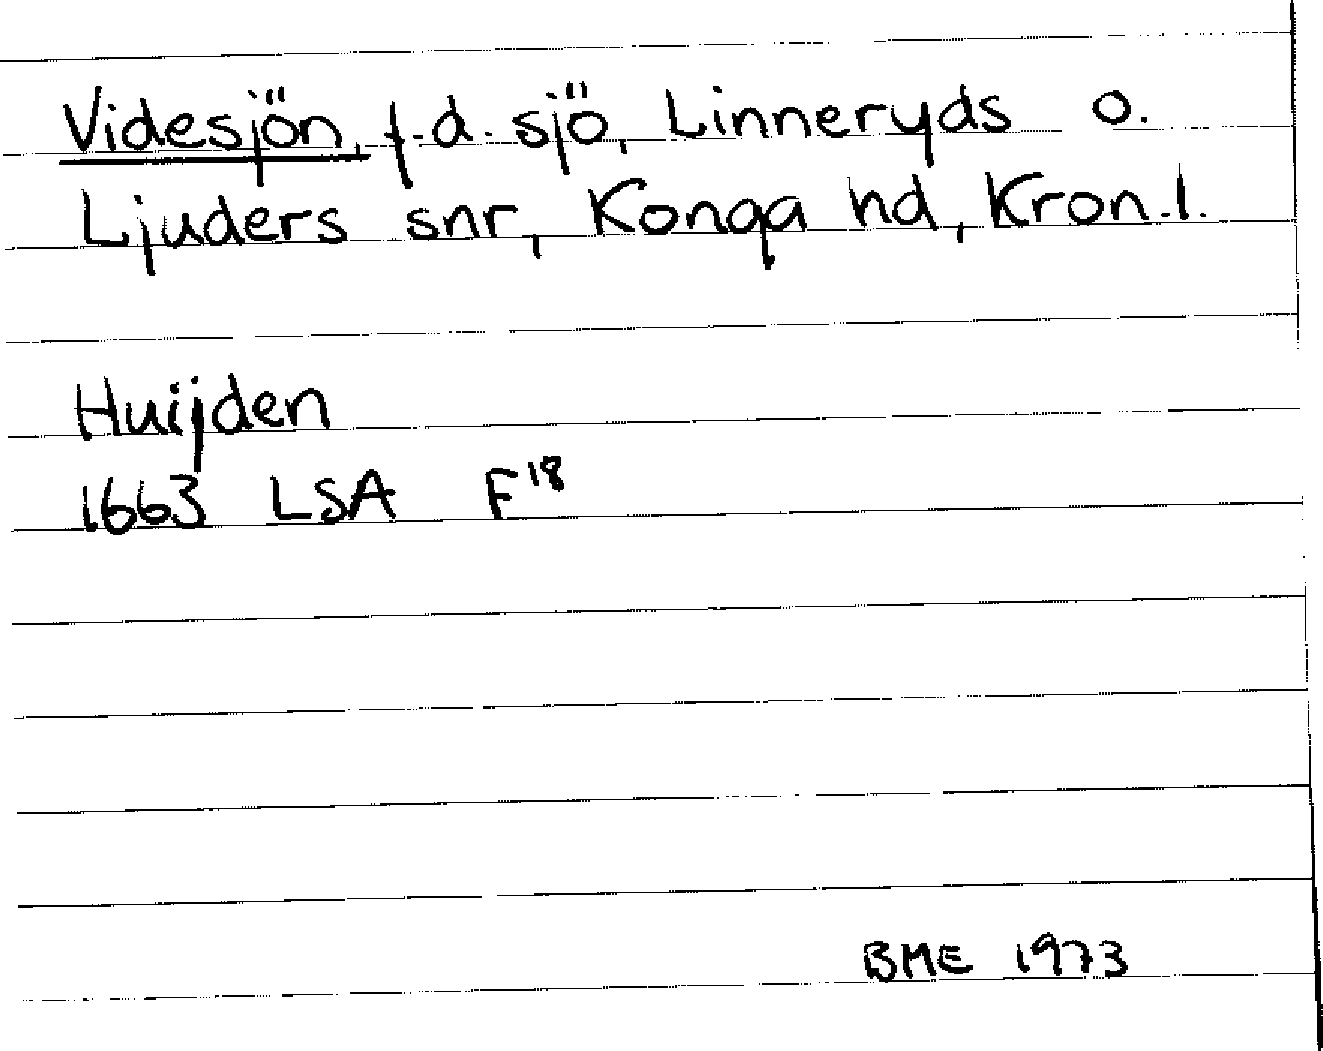 Videsjön, f.d. sjö, Linneryds o.
Ljuders snr, Konga hd, Kron.l.
Huijden
1663 LSA F18
BME 1973